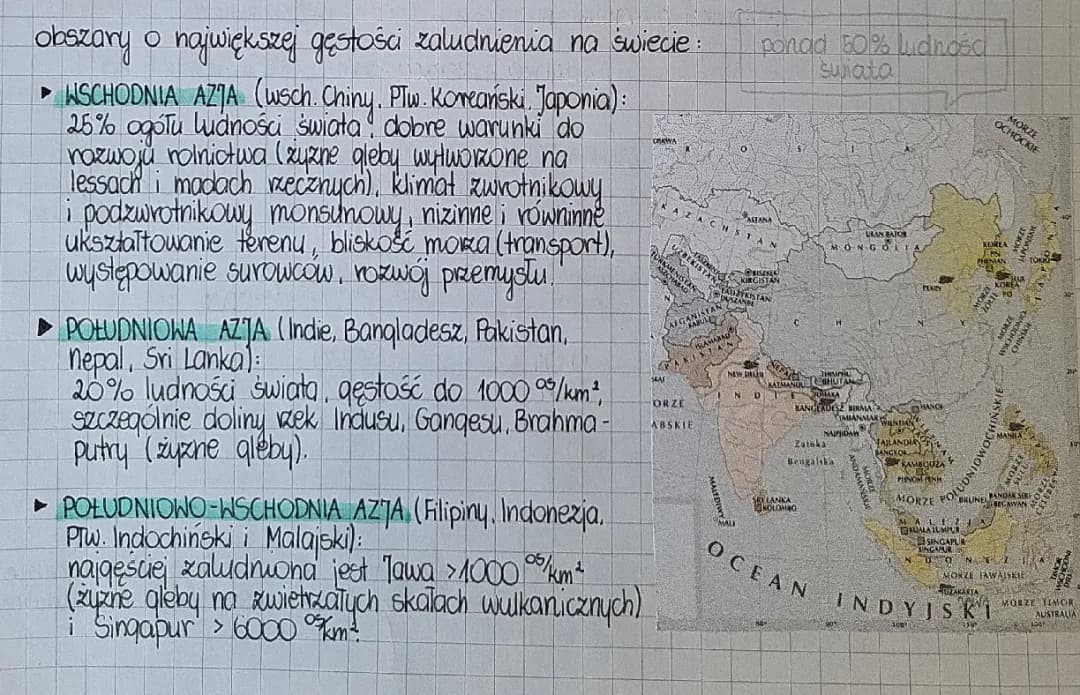 obszary o największej gęstości zaludnienia na świecie:
ponad 50% ludności
świata
▸ WSCHODNIA AZJA (wsch. Chiny, Płw. Koreański, Japonia):
25% ogółu ludności świata, dobre warunki do
rozwoju rolnictwa (żyzne gleby wytworzone na
lessach i madach rzecznych), klimat zwrotnikowy
i podzwrotnikowy monsunowy, nizinne i równinne
ukształtowanie terenu, bliskość morza (transport),
występowanie surowców, rozwój przemysłu.
▸ POŁUDNIOWA AZJA (Indie, Bangladesz, Pakistan,
Nepal, Sri Lanka):
20% ludności świata, gęstość do 1000 os/km²,
szczególnie doliny rzek Indusu, Gangesu, Brahma-
putry (żyzne gleby).
▸ POŁUDNIOWO-WSCHODNIA AZJA (Filipiny, Indonezja,
Płw. Indochiński i Malajski):
najgęściej zaludniona jest Jawa >1000 os/km²
(żyzne gleby na zwietrzałych skałach wulkanicznych)
i Singapur > 6000 os/km².
MORZE
OCHOCKIE
R O S J A
KAZACHSTAN
ASTANA
UŁAN BATOR
MONGOLIA
UZBEKISTAN
BISZKEK
KIRGISTAN
TADŻYKISTAN
DUSZANBE
AFGANISTAN
KABUL
ISLAMABAD
PAKISTAN
PEKIN
KOREA
PHENIAN
KOREA
MORZE
JAPOŃSKIE
TOKIO
MORZE
ŻÓŁTE
MORZE
WSCHODNIO-
CHIŃSKIE
C H I N Y
NEW DELHI
NEPAL
KATMANDU
THIMPHU
BHUTAN
DHAKA
INDIE
BANGLADESZ
BIRMA
(MIANMAR)
NAJPIDAW
HANOI
WIENTIAN
TAJLANDIA
BANGKOK
KAMBODŻA
PHNOM PENH
WIETNAM
MANILA
Zatoka
Bengalska
MORZE
ANDAMAŃSKIE
MORZE POŁUDNIOWOCHIŃSKIE
SRI LANKA
KOLOMBO
MALEDIWY
MALI
BRUNEI
BANDAR SERI
BEGAWAN
MORZE
SULU
MORZE
CELEBES
MALEZJA
KUALA LUMPUR
SINGAPUR
SINGAPUR
INDONEZJA
MORZE JAWAJSKIE
DŻAKARTA
TIMOR
WSCHODNI
DILI
MORZE TIMOR
AUSTRALIA
OCEAN INDYJSKI